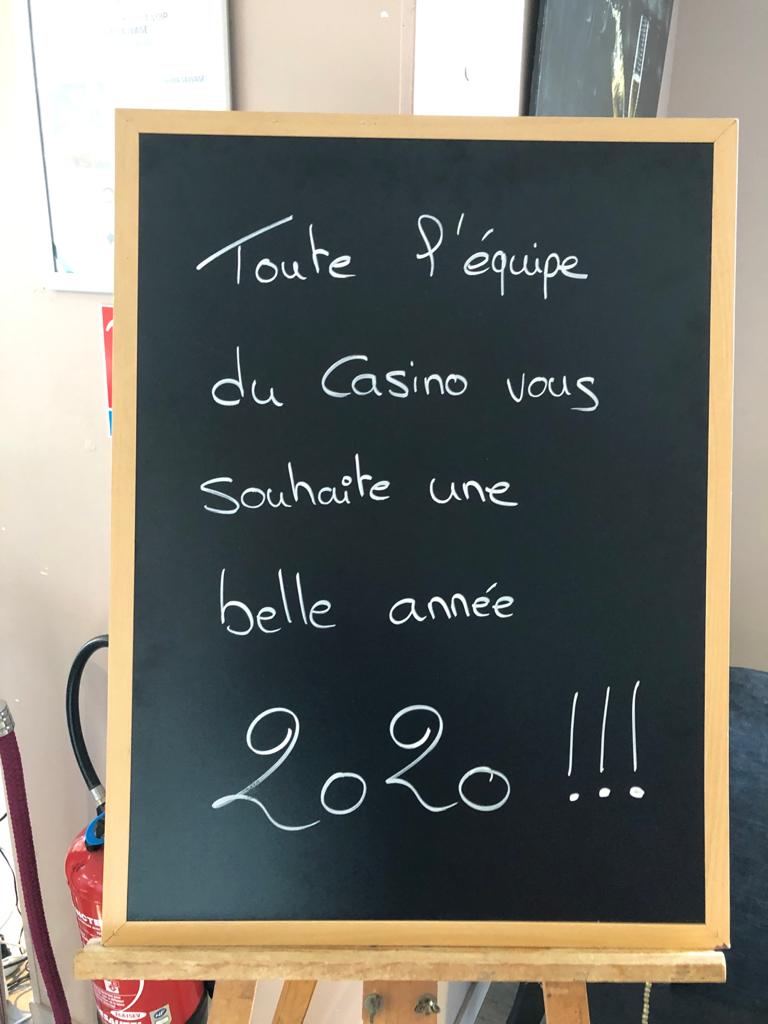 Toute l'équipe
du Casino vous
souhaite une
belle année
2020 !!!